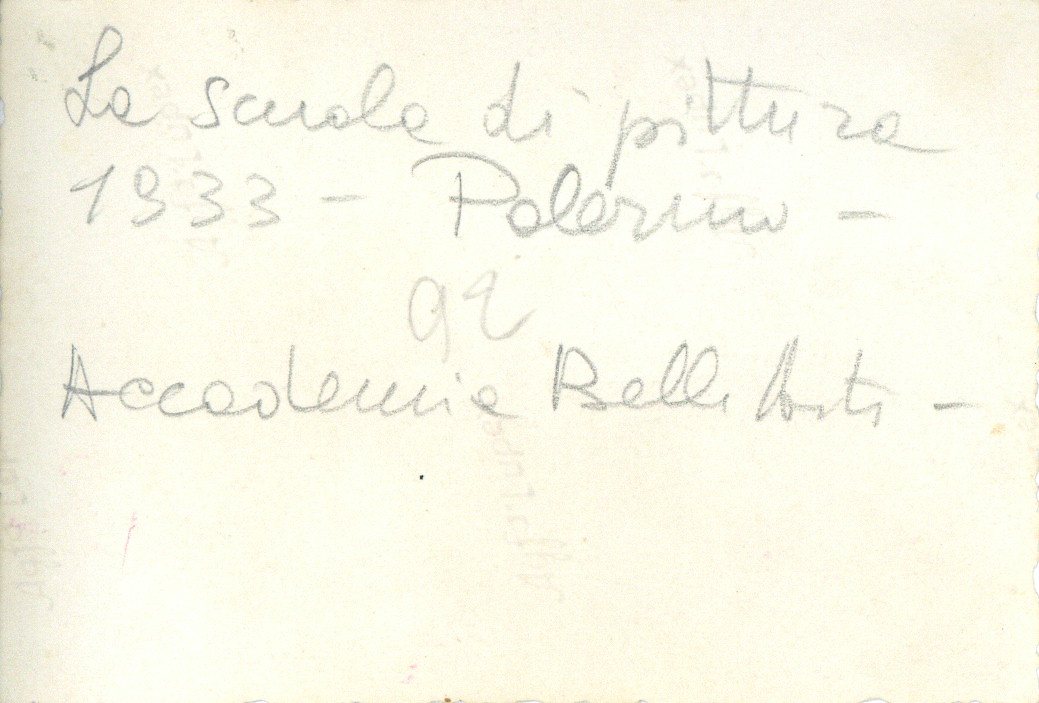 La scuola di pittura
1933 - Palermo -
92
Accademia Belle Arti -